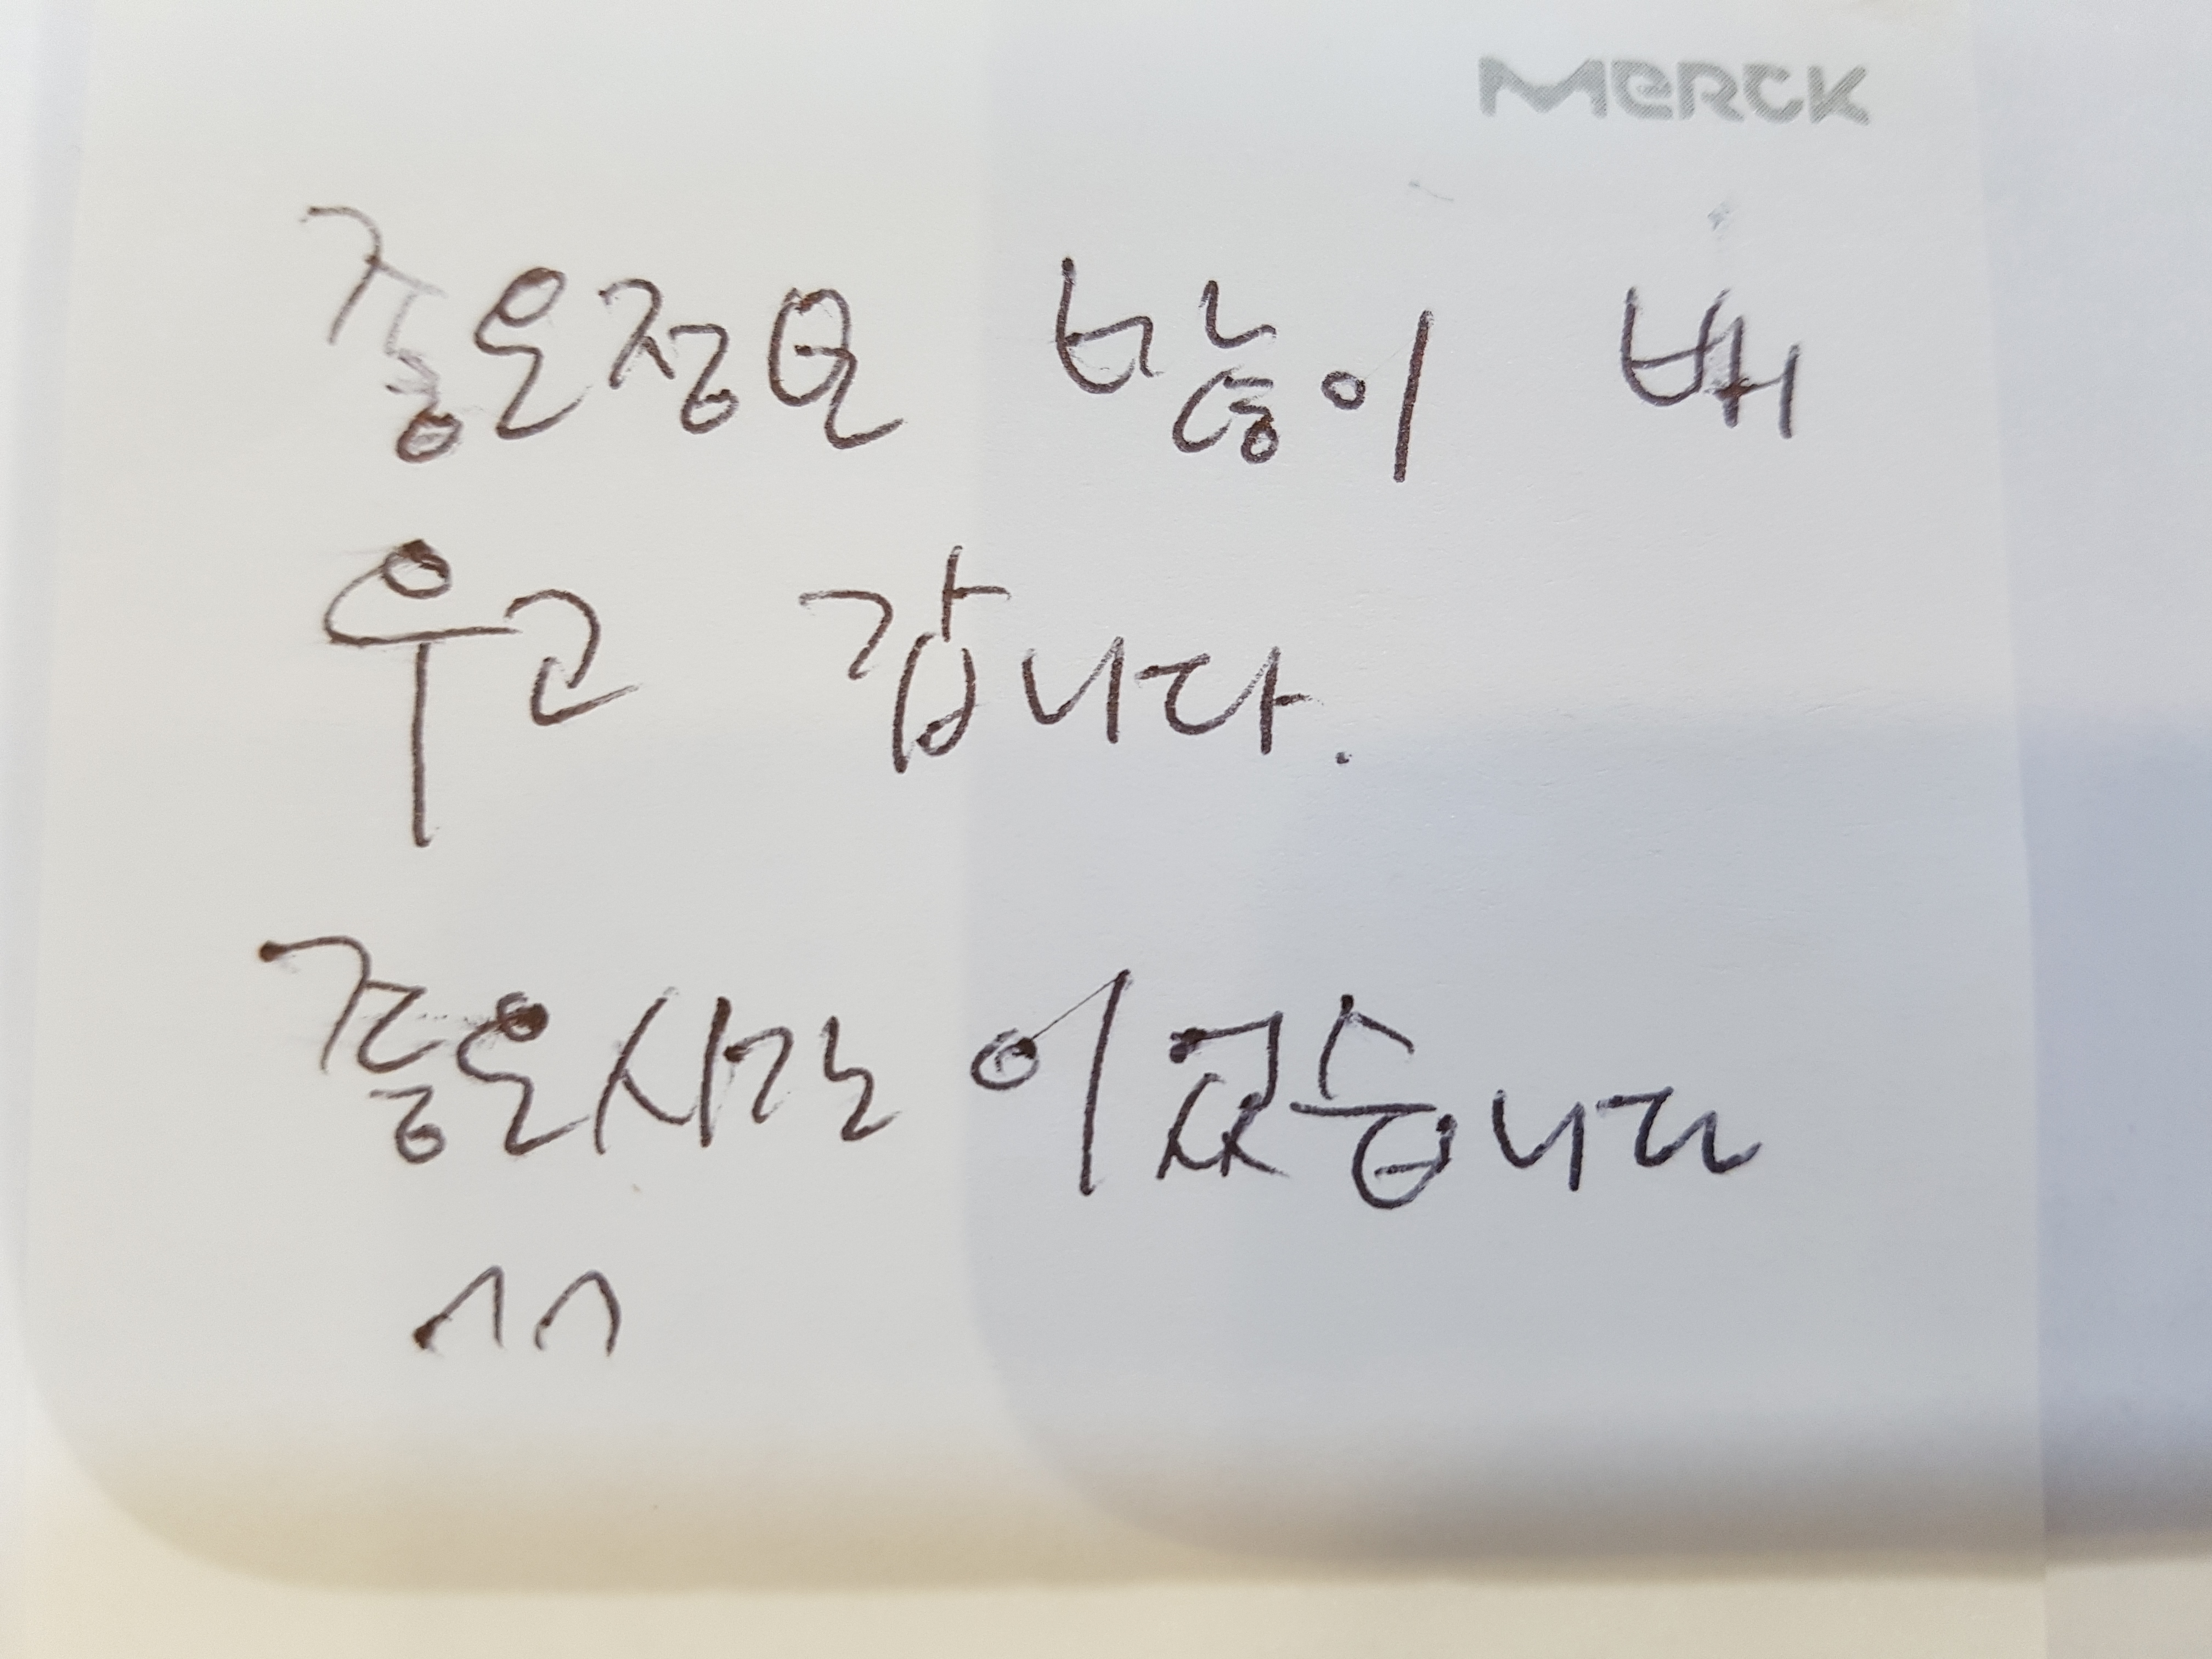 MERCK
좋은정보 많이 배
우고 갑니다.
좋은시간 이였습니다
^^